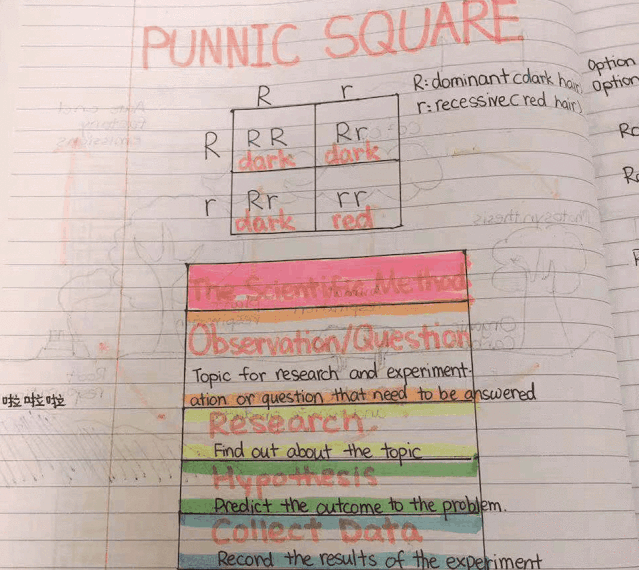 PUNNIC SQUARE
R: dominant (dark hair)
r: recessive (red hair)
Option
Option
R r
R RR Rr
dark dark
r Rr rr
dark red
The Scientific Method
Observation/Question
Topic for research and experiment-
ation or question that need to be answered
啦啦啦
Research
Find out about the topic
Hypothesis
Predict the outcome to the problem.
Collect Data
Record the results of the experiment